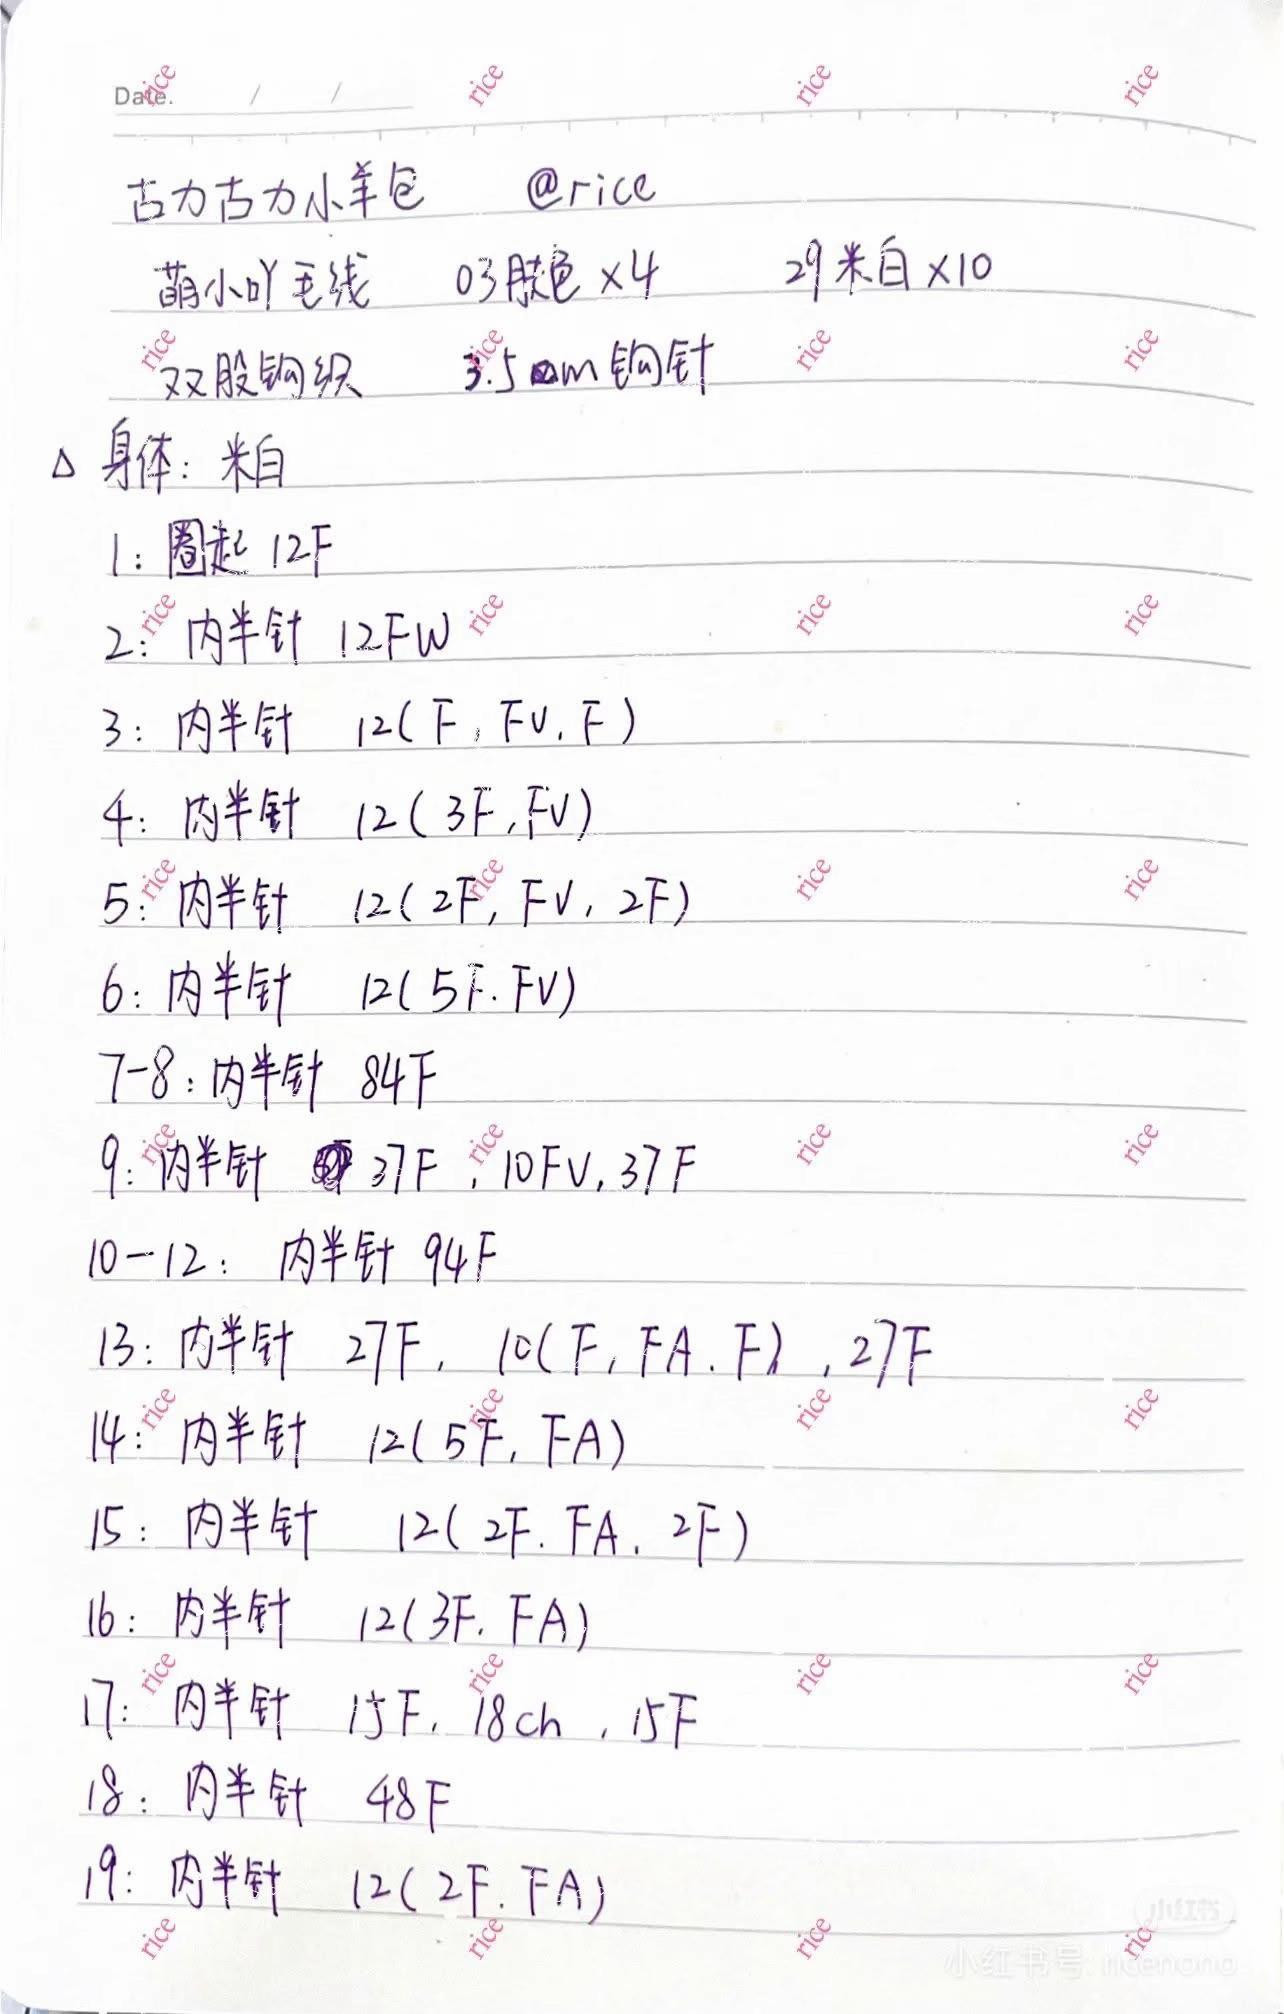 Date. / /
古力古力小羊包 @rice
萌小吖毛线 03肤色×4 29米白×10
双股钩织 3.5mm钩针
△ 身体: 米白
1: 圈起 12F
2: 内半针 12FW
3: 内半针 12(F, FV, F)
4: 内半针 12(3F, FV)
5: 内半针 12(2F, FV, 2F)
6: 内半针 12(5F. FV)
7-8: 内半针 84F
9: 内半针 37F, 10FV, 37F
10-12: 内半针 94F
13: 内半针 27F, 10(F, FA. F), 27F
14: 内半针 12(5F, FA)
15: 内半针 12(2F. FA. 2F)
16: 内半针 12(3F. FA)
17: 内半针 15F, 18ch, 15F
18: 内半针 48F
19: 内半针 12(2F. FA)
小红书
小红书号: ricenono
rice rice rice rice
rice rice rice rice
rice rice rice rice
rice rice rice rice
rice rice rice rice
rice rice rice rice
rice rice rice rice
rice rice rice rice